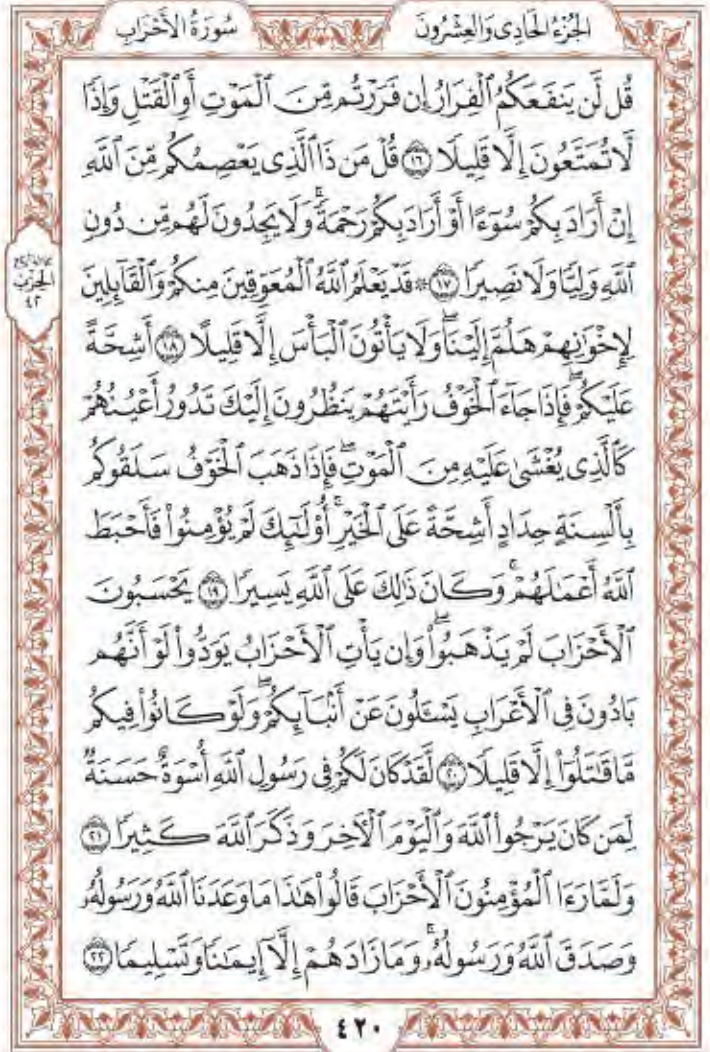 الجُزْءُ الحَادِى وَالعِشْرُونَ
سُورَةُ الأَحْزَابِ
قُل لَّن يَنفَعَكُمُ ٱلْفِرَارُ إِن فَرَرْتُم مِّنَ ٱلْمَوْتِ أَوِ ٱلْقَتْلِ وَإِذًا
لَّا تُمَتَّعُونَ إِلَّا قَلِيلًا ١٦ قُلْ مَن ذَا ٱلَّذِى يَعْصِمُكُم مِّنَ ٱللَّهِ
إِنْ أَرَادَ بِكُمْ سُوٓءًا أَوْ أَرَادَ بِكُمْ رَحْمَةًۚ وَلَا يَجِدُونَ لَهُم مِّن دُونِ
ٱللَّهِ وَلِيًّا وَلَا نَصِيرًا ١٧ ۞ قَدْ يَعْلَمُ ٱللَّهُ ٱلْمُعَوِّقِينَ مِنكُمْ وَٱلْقَآئِلِينَ
لِإِخْوَٰنِهِمْ هَلُمَّ إِلَيْنَاۖ وَلَا يَأْتُونَ ٱلْبَأْسَ إِلَّا قَلِيلًا ١٨ أَشِحَّةً
عَلَيْكُمْۖ فَإِذَا جَآءَ ٱلْخَوْفُ رَأَيْتَهُمْ يَنظُرُونَ إِلَيْكَ تَدُورُ أَعْيُنُهُمْ
كَٱلَّذِى يُغْشَىٰ عَلَيْهِ مِنَ ٱلْمَوْتِۖ فَإِذَا ذَهَبَ ٱلْخَوْفُ سَلَقُوكُم
بِأَلْسِنَةٍ حِدَادٍ أَشِحَّةً عَلَى ٱلْخَيْرِۚ أُو۟لَٰٓئِكَ لَمْ يُؤْمِنُوا۟ فَأَحْبَطَ
ٱللَّهُ أَعْمَٰلَهُمْۚ وَكَانَ ذَٰلِكَ عَلَى ٱللَّهِ يَسِيرًا ١٩ يَحْسَبُونَ
ٱلْأَحْزَابَ لَمْ يَذْهَبُوا۟ۖ وَإِن يَأْتِ ٱلْأَحْزَابُ يَوَدُّوا۟ لَوْ أَنَّهُم
بَادُونَ فِى ٱلْأَعْرَابِ يَسْـَٔلُونَ عَنْ أَنۢبَآئِكُمْۖ وَلَوْ كَانُوا۟ فِيكُم
مَّا قَٰتَلُوٓا۟ إِلَّا قَلِيلًا ٢٠ لَّقَدْ كَانَ لَكُمْ فِى رَسُولِ ٱللَّهِ أُسْوَةٌ حَسَنَةٌ
لِّمَن كَانَ يَرْجُوا۟ ٱللَّهَ وَٱلْيَوْمَ ٱلْءَاخِرَ وَذَكَرَ ٱللَّهَ كَثِيرًا ٢١
وَلَمَّا رَءَا ٱلْمُؤْمِنُونَ ٱلْأَحْزَابَ قَالُوا۟ هَٰذَا مَا وَعَدَنَا ٱللَّهُ وَرَسُولُهُۥ
وَصَدَقَ ٱللَّهُ وَرَسُولُهُۥۚ وَمَا زَادَهُمْ إِلَّآ إِيمَٰنًا وَتَسْلِيمًا ٢٢
الحِزْب
٤٢
٤٢٠